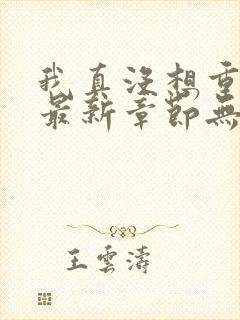 我真没想重
最新章節無
王雲濤